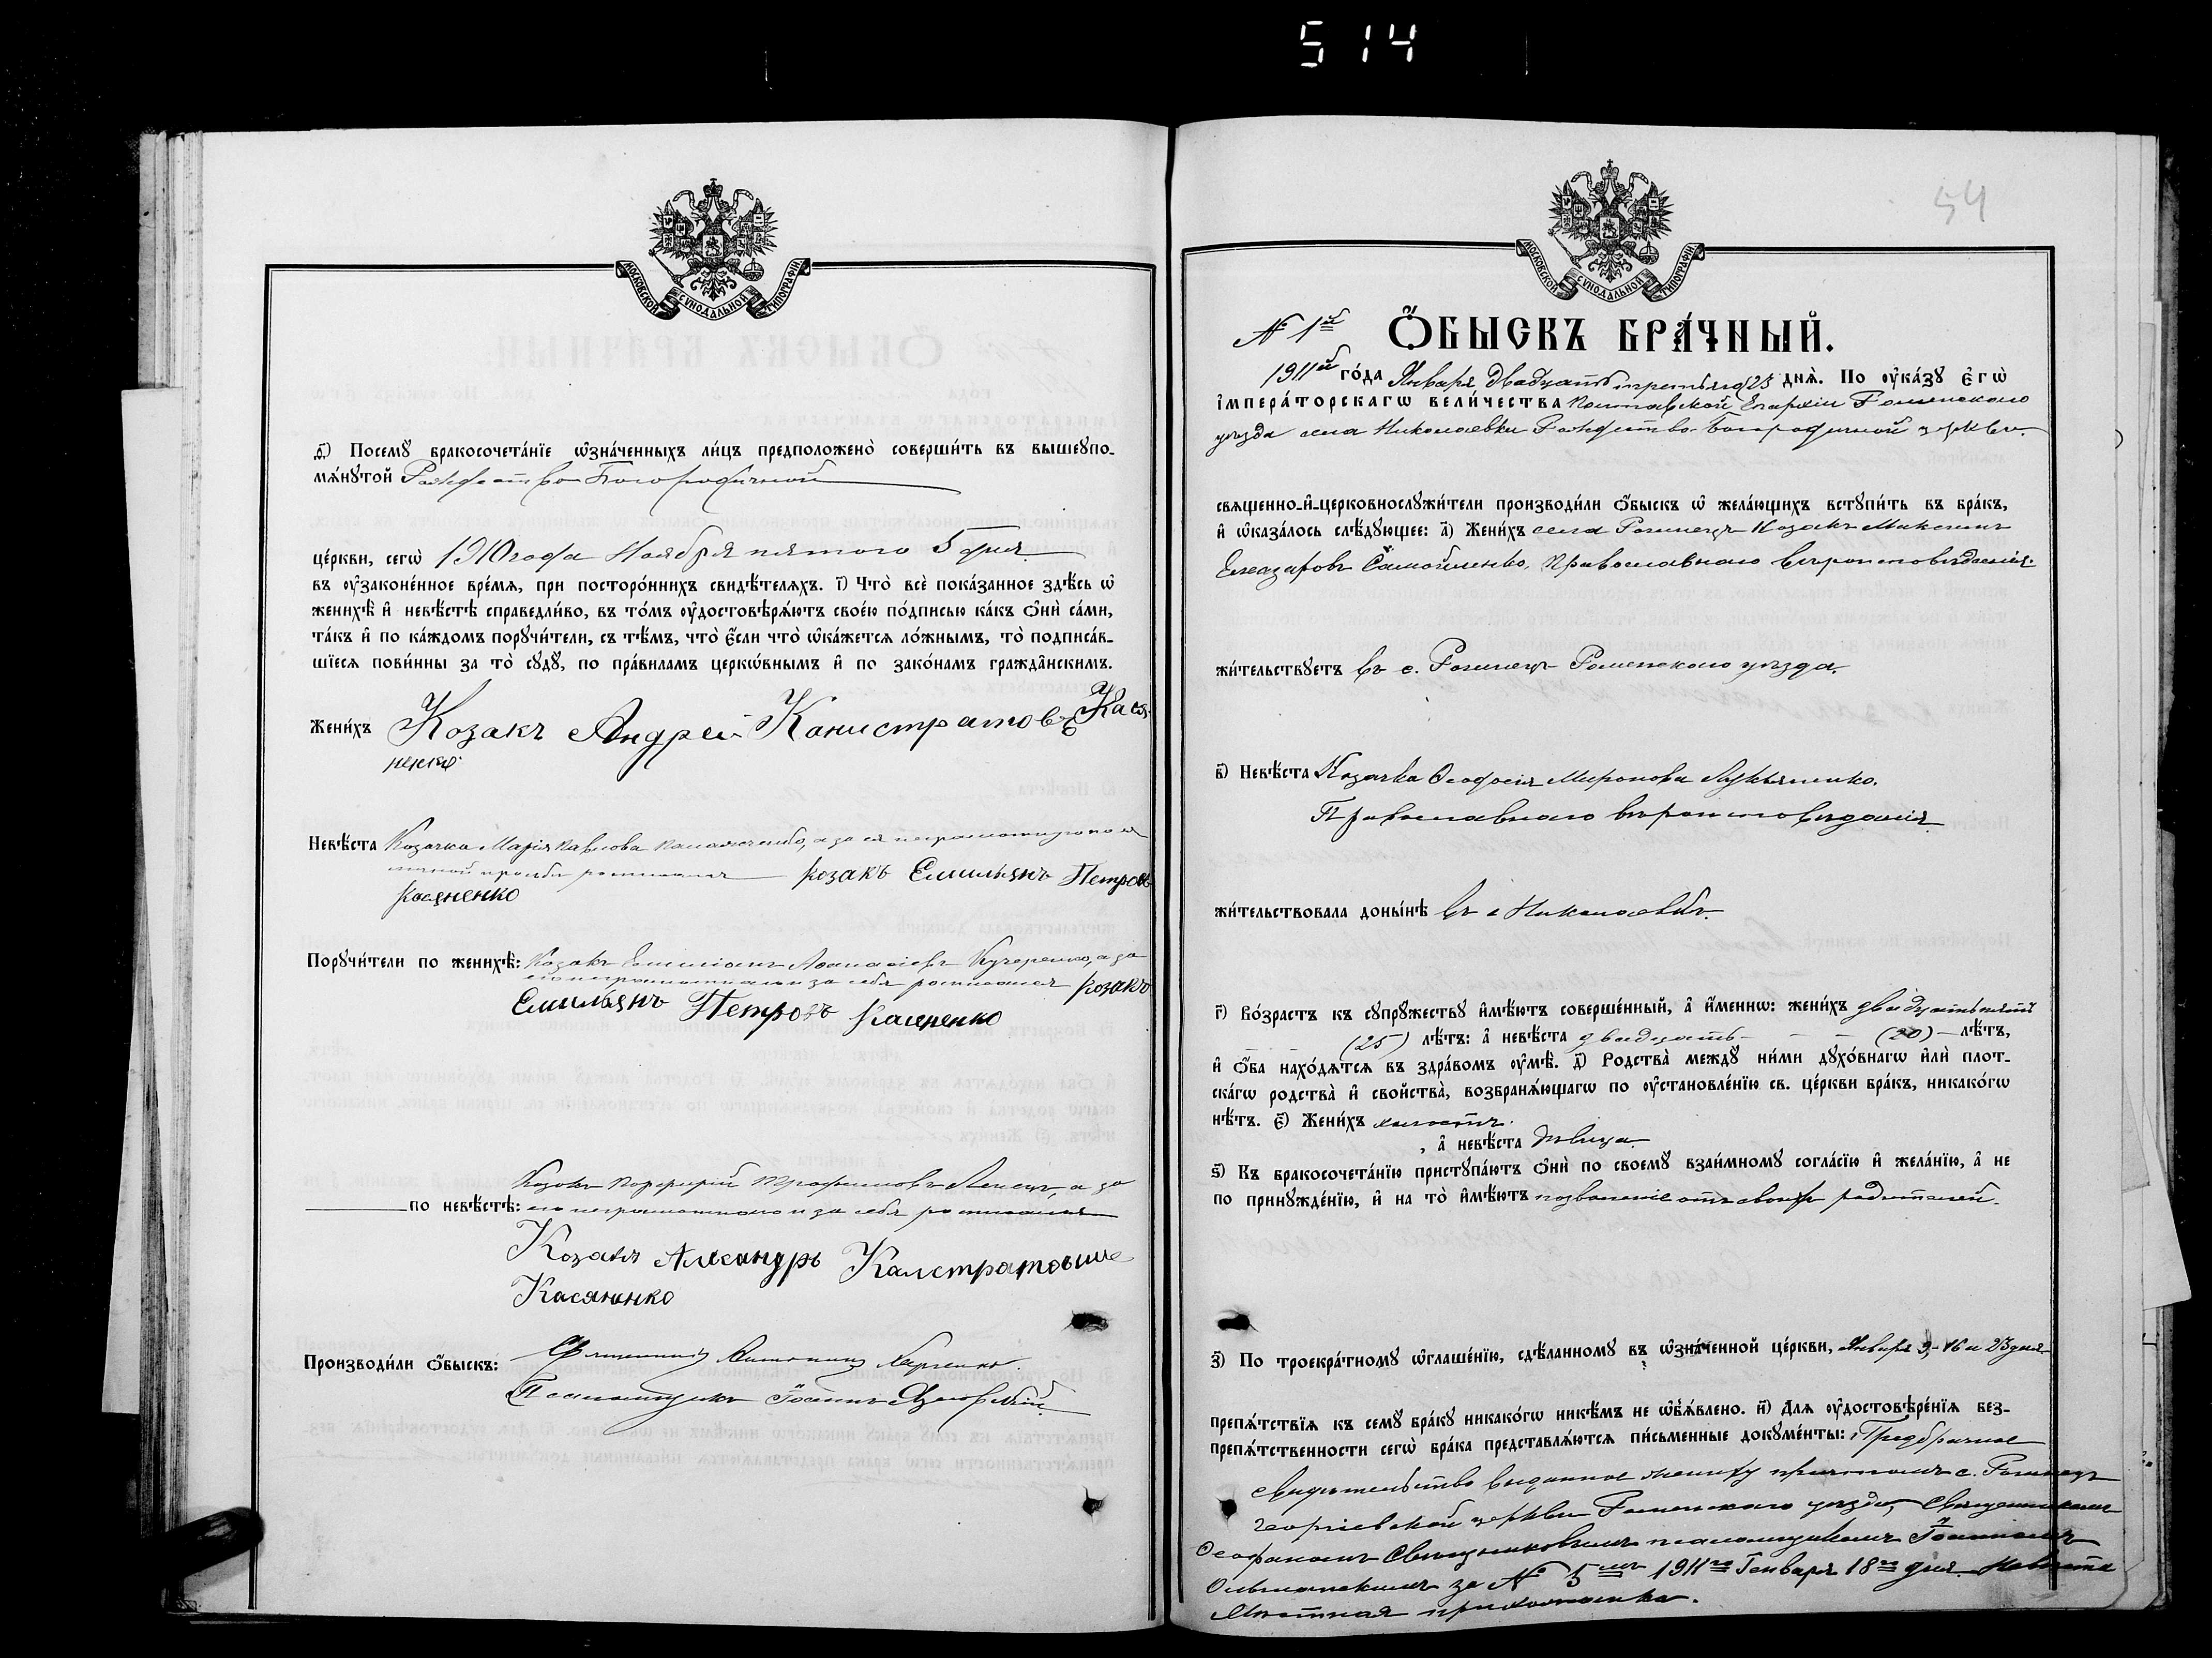 514
МОСКОВСКОЙ СѴНОДАЛЬНОЙ ТИПОГРАФІИ.
д҃і) Посемꙋ бракосочета́нїе ѡ҆зна́ченныхъ ли́цъ предположено̀ соверши́ть въ вышеꙋпо-
мѧ́нꙋтой Рождество-Богородичной
це́ркви, сегѡ̀ 1910 года Ноября пятого 5 дня
въ ᲂу҆законе́нное вре́мѧ, при посторо́ннихъ свидѣ́телѧхъ. і҃) Что̀ всѐ пока́занное здѣ́сь ѡ҆
женихѣ̀ и҆ невѣ́стѣ справедли́во, въ то́мъ ᲂу҆достовѣрѧ́ютъ свое́ю по́дписью ка́къ ѻ҆нѝ са́ми,
та́къ и҆ по ка́ждомъ порꙋчи́тели, съ тѣ́мъ, что̀ є҆́сли что̀ ѡ҆ка́жетсѧ ло́жнымъ, то̀ подписа́в-
шїесѧ пови́нны за то̀ сꙋдꙋ̀, по пра́виламъ церкѡ́внымъ и҆ по зако́намъ гражда̑нскимъ.
Жени́хъ Козакъ Андрей Канистратовъ Кася-
ненко
Невѣ́ста Козачка Марія Павлова а за ея неграмотную по ея
личной просьбѣ росписался козакъ Емильянъ Петровъ
Касяненко
Порꙋчи́тели по женихѣ̀: Козакъ Емиліанъ Аѳанасіевъ Кучеренко, а за
его неграмотнаго и за себя росписался козакъ
Емильянъ Петровъ Касяненко
Козакъ Порфирій Трофимовъ а за
по невѣ́стѣ: его неграмотнаго и за себя росписался
Козакъ Алксандръ Калстратовиче
Касяненко
Производи́ли ѻ҆́быскъ: Священникъ
Псаломщикъ Іоаннъ
54
МОСКОВСКОЙ СѴНОДАЛЬНОЙ ТИПОГРАФІИ.
№ 1й Ѻ҆́БЫСКЪ БРА́ЧНЫЙ.
1911й го́да Января двадцать третьяго 23 днѧ̀. По ᲂу҆ка́зꙋ є҆гѡ̀
і҆мпера́торскагѡ вели́чества Полтавской Епархіи Роменского
уезда села Николаевки Рождество-Богородичной церкви.
свѧщенно-и҆-церковнослꙋжи́тели производи́ли ѻ҆́быскъ ѡ҆ жела́ющихъ встꙋпи́ть въ бра́къ,
и҆ ѡ҆каза́лось слѣ́дꙋющее: а҃) Жени́хъ села Гомецъ Козакъ Максимъ
Елеазаровъ Самойленко, Православнаго вѣроисповѣданія.
жи́тельствꙋетъ въ с. Роменского уезда.
в҃) Невѣ́ста Козачка Ѳеодосія Миронова Лукьяненко.
Православнаго вѣроисповѣданія
жи́тельствовала доны́нѣ въ с. Николаевкѣ.
г҃) Во́зрастъ къ сꙋпрꙋ́жествꙋ и҆мѣ́ютъ соверше́нный, а҆ и҆́меннѡ: жени́хъ двадцать пять
(25) лѣ́тъ: а҆ невѣ́ста двадцать (20) лѣ́тъ,
и҆ ѻ҆́ба нахо́дѧтсѧ въ здра́вомъ ᲂу҆мѣ̀. д҃) Родства̀ междꙋ̀ ни́ми дꙋхо́внагѡ и҆лѝ плот-
ска́гѡ родства̀ и҆ сво́йства, возбранѧ́ющагѡ по ᲂу҆становле́нїю св. це́ркви бра́къ, никако́гѡ
нѣ́тъ. є҃) Жени́хъ холостъ.
, а҆ невѣ́ста дѣвица.
ѕ҃) Къ бракосочета́нїю приступа́ютъ ѻ҆нѝ по своемꙋ̀ взаи́мномꙋ согла́сїю и҆ жела́нїю, а҆ не
по принꙋжде́нїю, и҆ на то̀ и҆мѣ́ютъ позволеніе отъ своихъ родителей.
з҃) По троекра́тномꙋ ѡ҆глаше́нїю, сдѣ́ланномꙋ въ ѡ҆зна́ченной це́ркви, Января 9, 16 и 23 дня
препѧ́тствїѧ къ семꙋ̀ бра́кꙋ никако́гѡ никѣ́мъ не ѡ҆б̾ѧ́влено. и҃) Длѧ ᲂу҆достовѣре́нїѧ без-
препѧ́тственности сегѡ̀ бра́ка представлѧ́ютсѧ пи́сьменные докꙋме́нты: Предбрачное
свидѣтельство выданное жениху причтомъ с.
Георгіевской церкви Роменского уезда, Священникомъ
Ѳеофаномъ псаломщикомъ Іоанномъ
за № 5мъ 1911го Генваря 18го дня. Невѣста
мѣстная прихожанка.